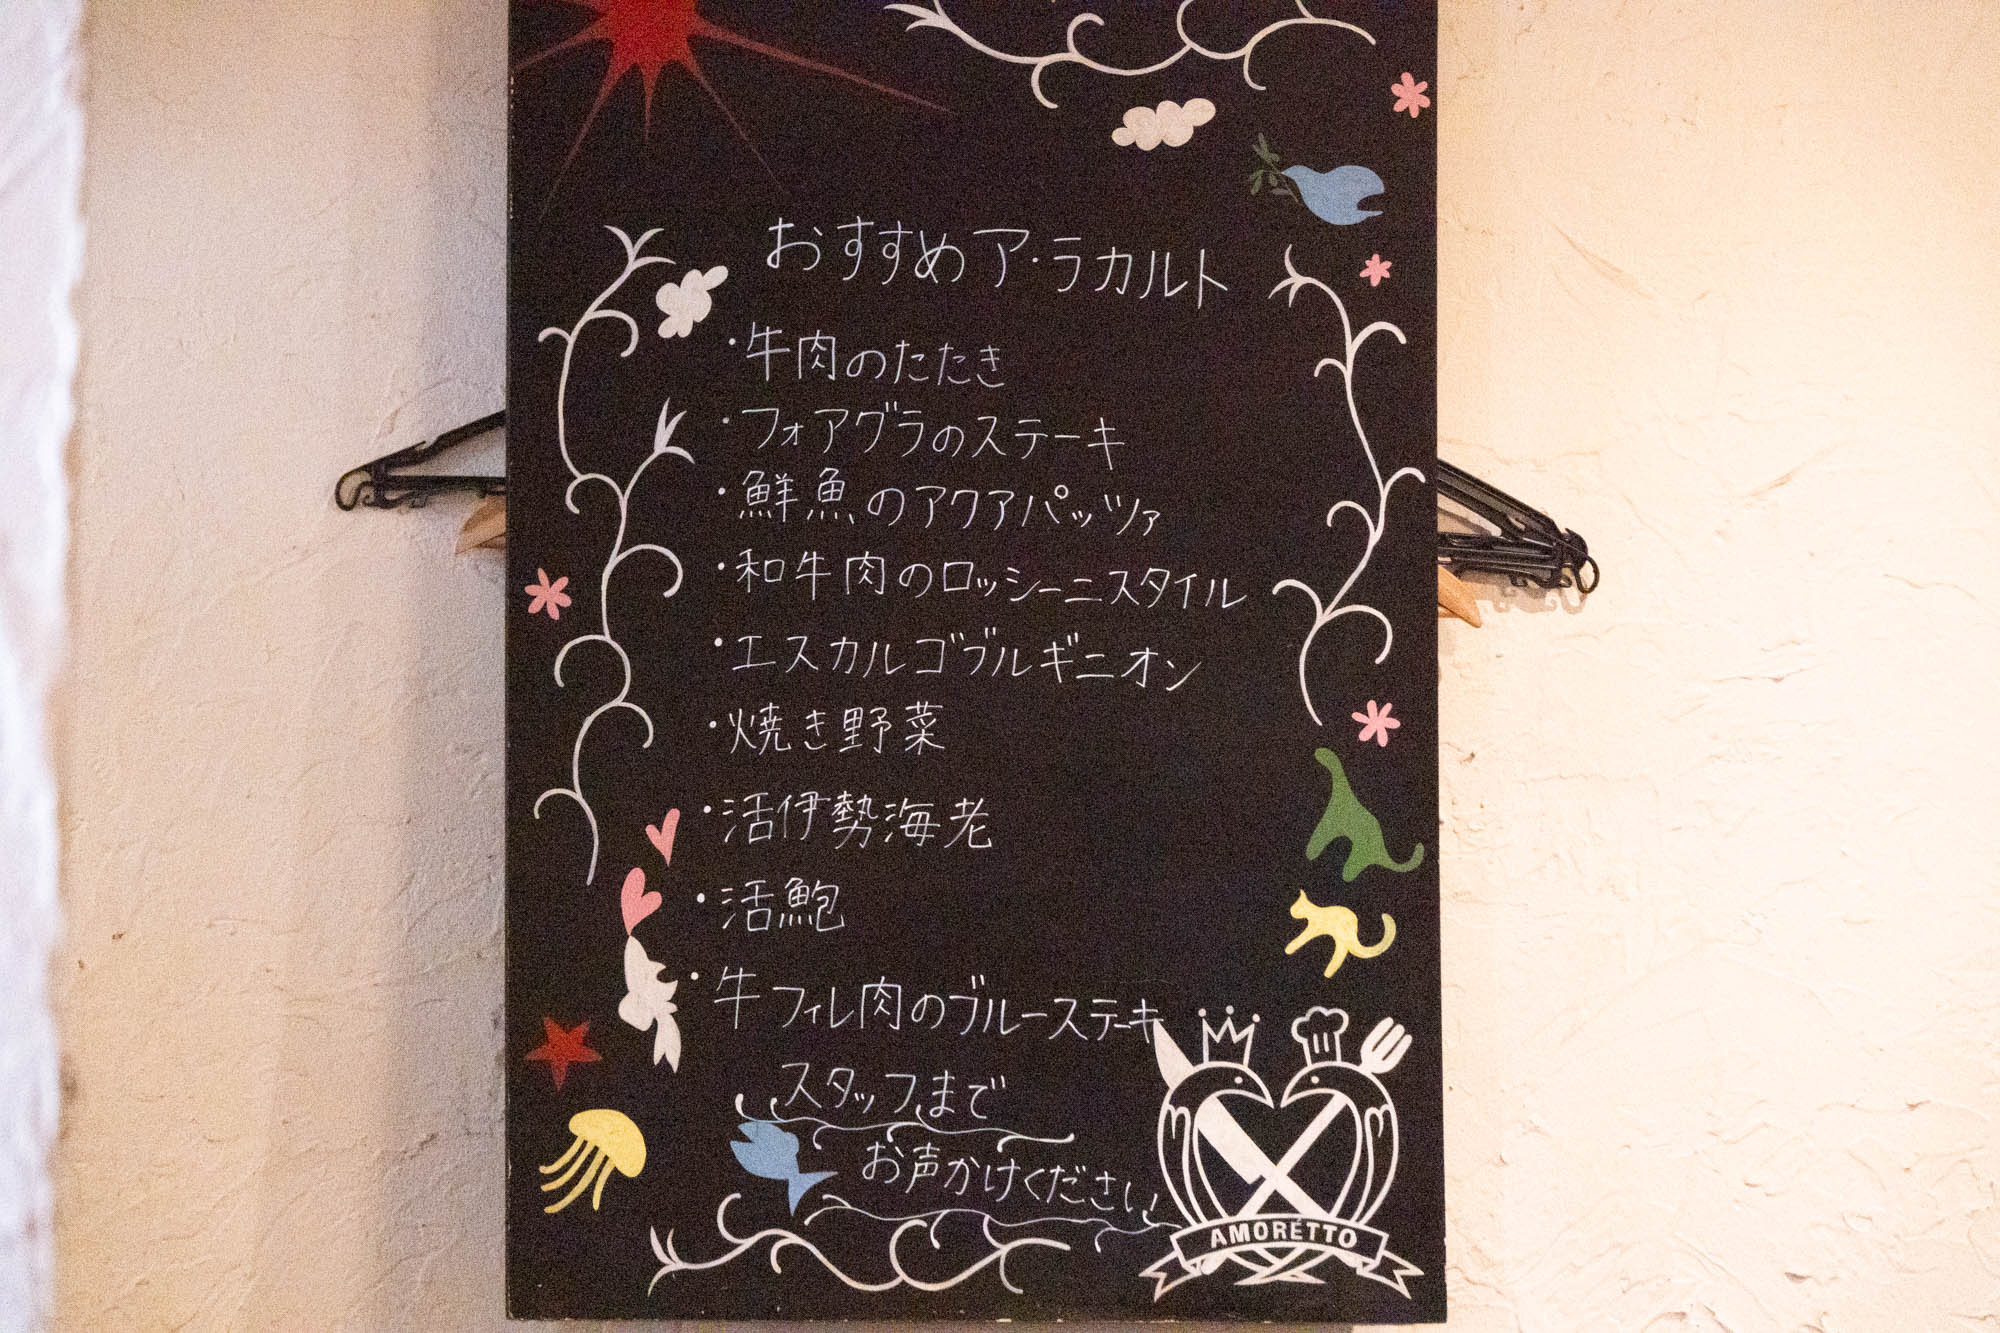 おすすめア・ラカルト
・牛肉のたたき
・フォアグラのステーキ
・鮮魚のアクアパッツァ
・和牛肉のロッシーニスタイル
・エスカルゴブルギニオン
・焼き野菜
・活伊勢海老
・活鮑
・牛フィレ肉のブルーステーキ
スタッフまで
お声かけください
AMORÉTTO